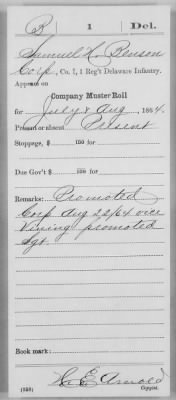 B 1 Del.
Samuel H. Benson
Corp., Co. I, 1 Reg't Delaware Infantry.
Appears on
Company Muster Roll
for July & Aug, 1864.
Present or absent Present
Stoppage, $ 100 for
Due Gov't $ 100 for
Remarks: Promoted
Corp Aug 22/64 vice
Vining promoted
Sgt.
Book mark:
E Arnold
(358) Copyist.